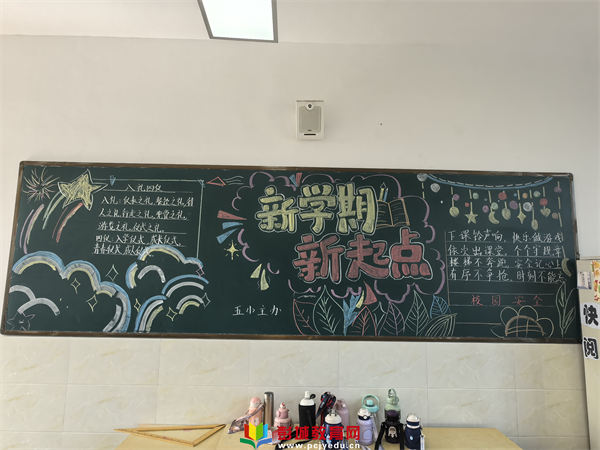 入礼四仪
入礼:仪表之礼、餐饮之礼、待
人之礼、行走之礼、观赏之礼、
游览之礼、仪式之礼。
四仪:入学仪式、成长仪式、
青春仪式、成人仪式
新学期
新起点
五小主办
下课铃声响,快乐做游戏
依次出课堂,个个守规章
楼梯不奔跑,安全记心
有序不争抢,时刻不能忘
校园安全
快阅
彭城教育网
www.pcjyedu.cn